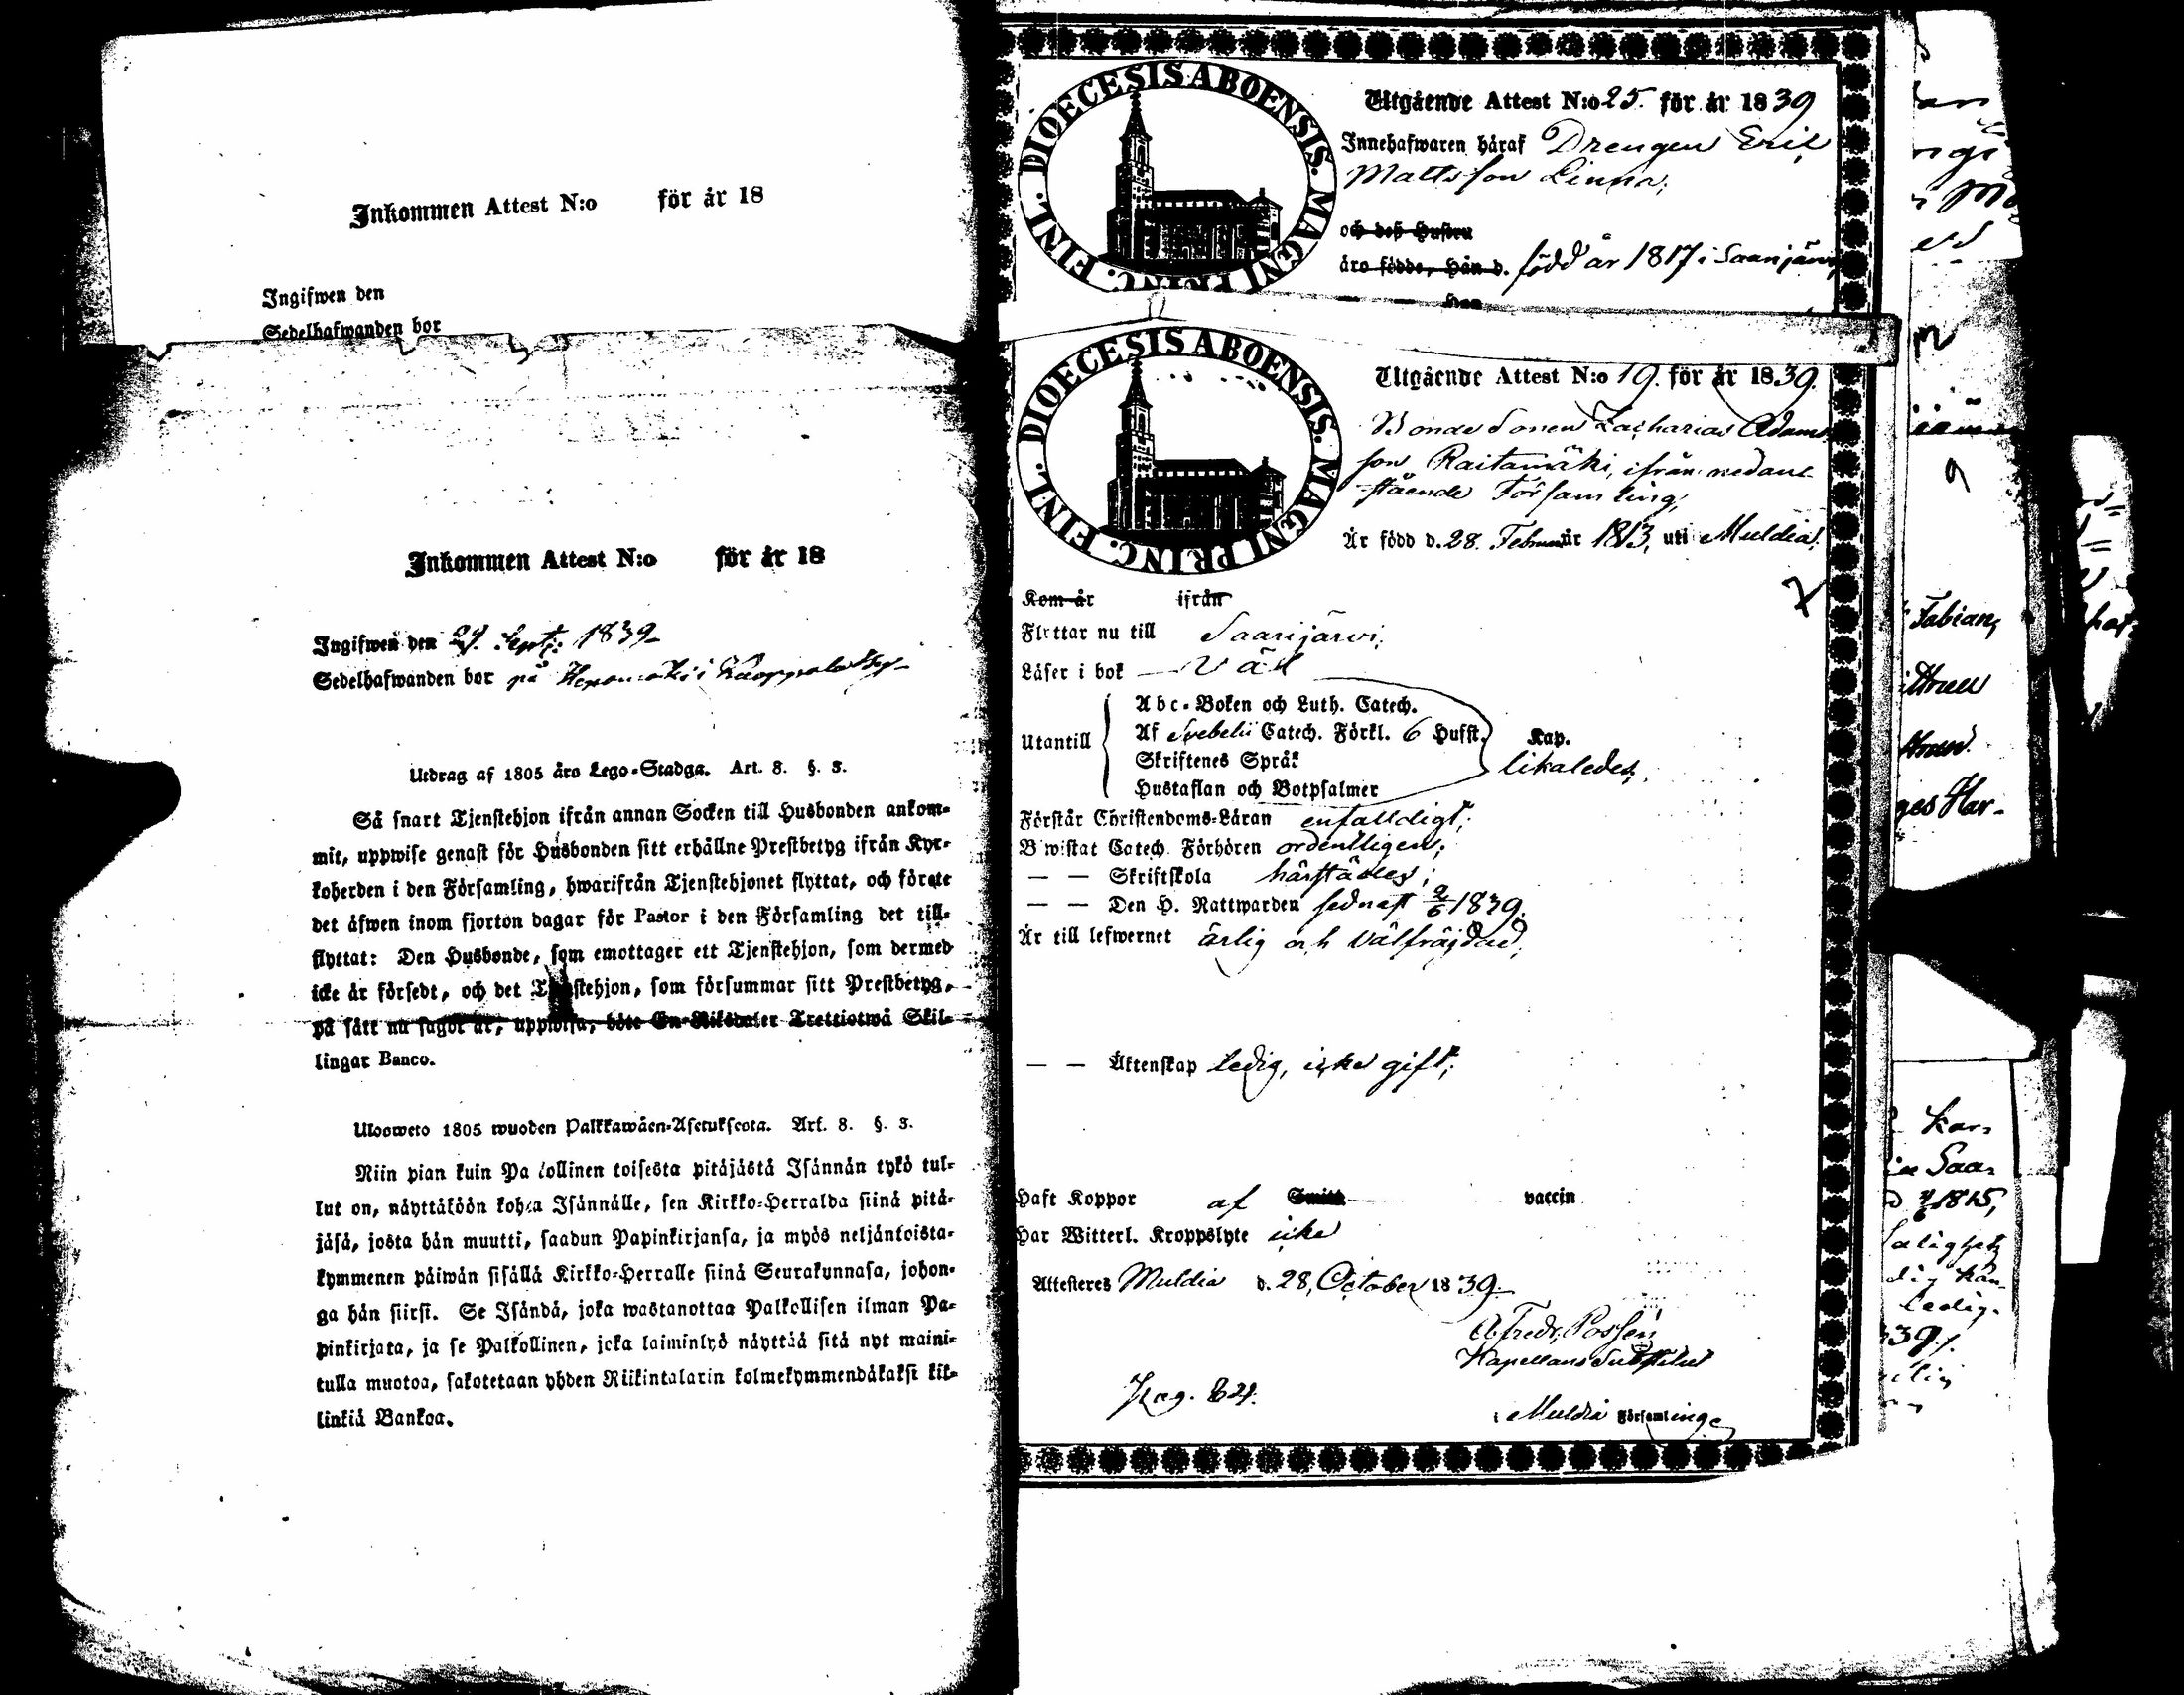 Inkommen Attest N:o för år 18
Ingifwen den
Sedelhafwanden bor
Inkommen Attest N:o för år 18
Ingifwen den 29. Sept: 1839
Sedelhafwanden bor på
Utdrag af 1805 års Lego-Stadga. Art. 8. §. 3.
Så snart Tjenstehjon ifrån annan Socken till Husbonden ankom-
mit, uppwise genast för Husbonden sitt erhållne Prestbetyg ifrån Kyr-
koherden i den Församling, hwarifrån Tjenstehjonet flyttat, och förete
det äfwen inom fjorton dagar för Pastor i den Församling det till-
flyttat: Den Husbonde, som emottager ett Tjenstehjon, som dermed
icke är försedt, och det Tjenstehjon, som försummar sitt Prestbetyg,
på sätt nu sagdt är, uppwisa, böte En Riksdaler Trettiotwå Skil-
lingar Banco.
Ulosweto 1805 wuoden Palkkawäen-Asetuksesta. Art. 8. §. 3.
Niin pian kuin Palkollinen toisesta pitäjästä Isännän tykö tul-
lut on, näyttäköön kohta Isännälle, sen Kirkko-Herralda siinä pitä-
jäsä, josta hän muutti, saadun Papinkirjansa, ja myös neljäntoista-
kymmenen päiwän sisällä Kirkko-Herralle siinä Seurakunnasa, johon-
ga hän siirsi. Se Isändä, joka wastanottaa Palkollisen ilman Pa-
pinkirjata, ja se Palkollinen, joka laiminlyö näyttää sitä nyt maini-
tulla muotoa, sakotetaan yhden Riikintalarin kolmekymmendäkaksi kil-
linkiä Bankoa.
DIOECESIS ABOENSIS. MAGNI PRINC. FINL.
Utgående Attest N:o 25. för år 1839
Innehafwaren häraf Drengen Eric
Mattsson Linna,
och deß Hustru
äro födde, Han d. född år 1817 i Saarijärvi
Hon
DIOECESIS ABOENSIS. MAGNI PRINC. FINL.
Utgående Attest N:o 19. för år 1839.
Bonde Sonen Zacharias Adams
son Raitamäki, ifrån nedan
stående Församling,
Är född d. 28. Februari år 1813, uti Muldia,
Kom år ifrån
Flyttar nu till Saarijärvi,
Läser i bok väl
Utantill
Abc-Boken och Luth. Catech.
Af Svebelii Catech. Förkl. 6 Hufst. Kap.
Skriftenes Språk likaledes,
Hustaflan och Botpsalmer
Förstår Christendoms-Läran enfalldigt;
Bewistat Catech. Förhören ordentligen;
— — Skriftskola härstädes;
— — Den H. Nattwarden sednast 2/6 1839.
Är till lefwernet ärlig och välfräjdad,
— — Äktenskap ledig, icke gift;
Haft Koppor af Smitt vaccin
Har Witterl. Kroppslyte icke
Attesteres Muldia d. 28, October 1839.
A. Fredr. Possén
Kapellans Substitut
Pag. 824.
i Muldia Församling
Fabian,
ges Har-
Kar-
Saa-
1815,
ledig.